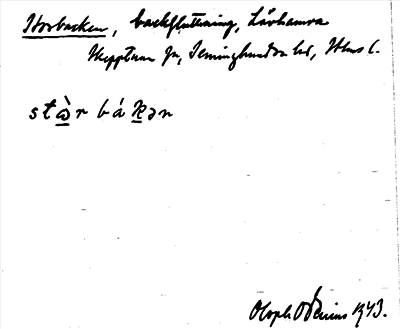 Storbacken, backsluttning, Lövhamra
Skepptuna sn, Seminghundra hd, Sthms l.
stὼr bákən
Oloph Odenius 1943.